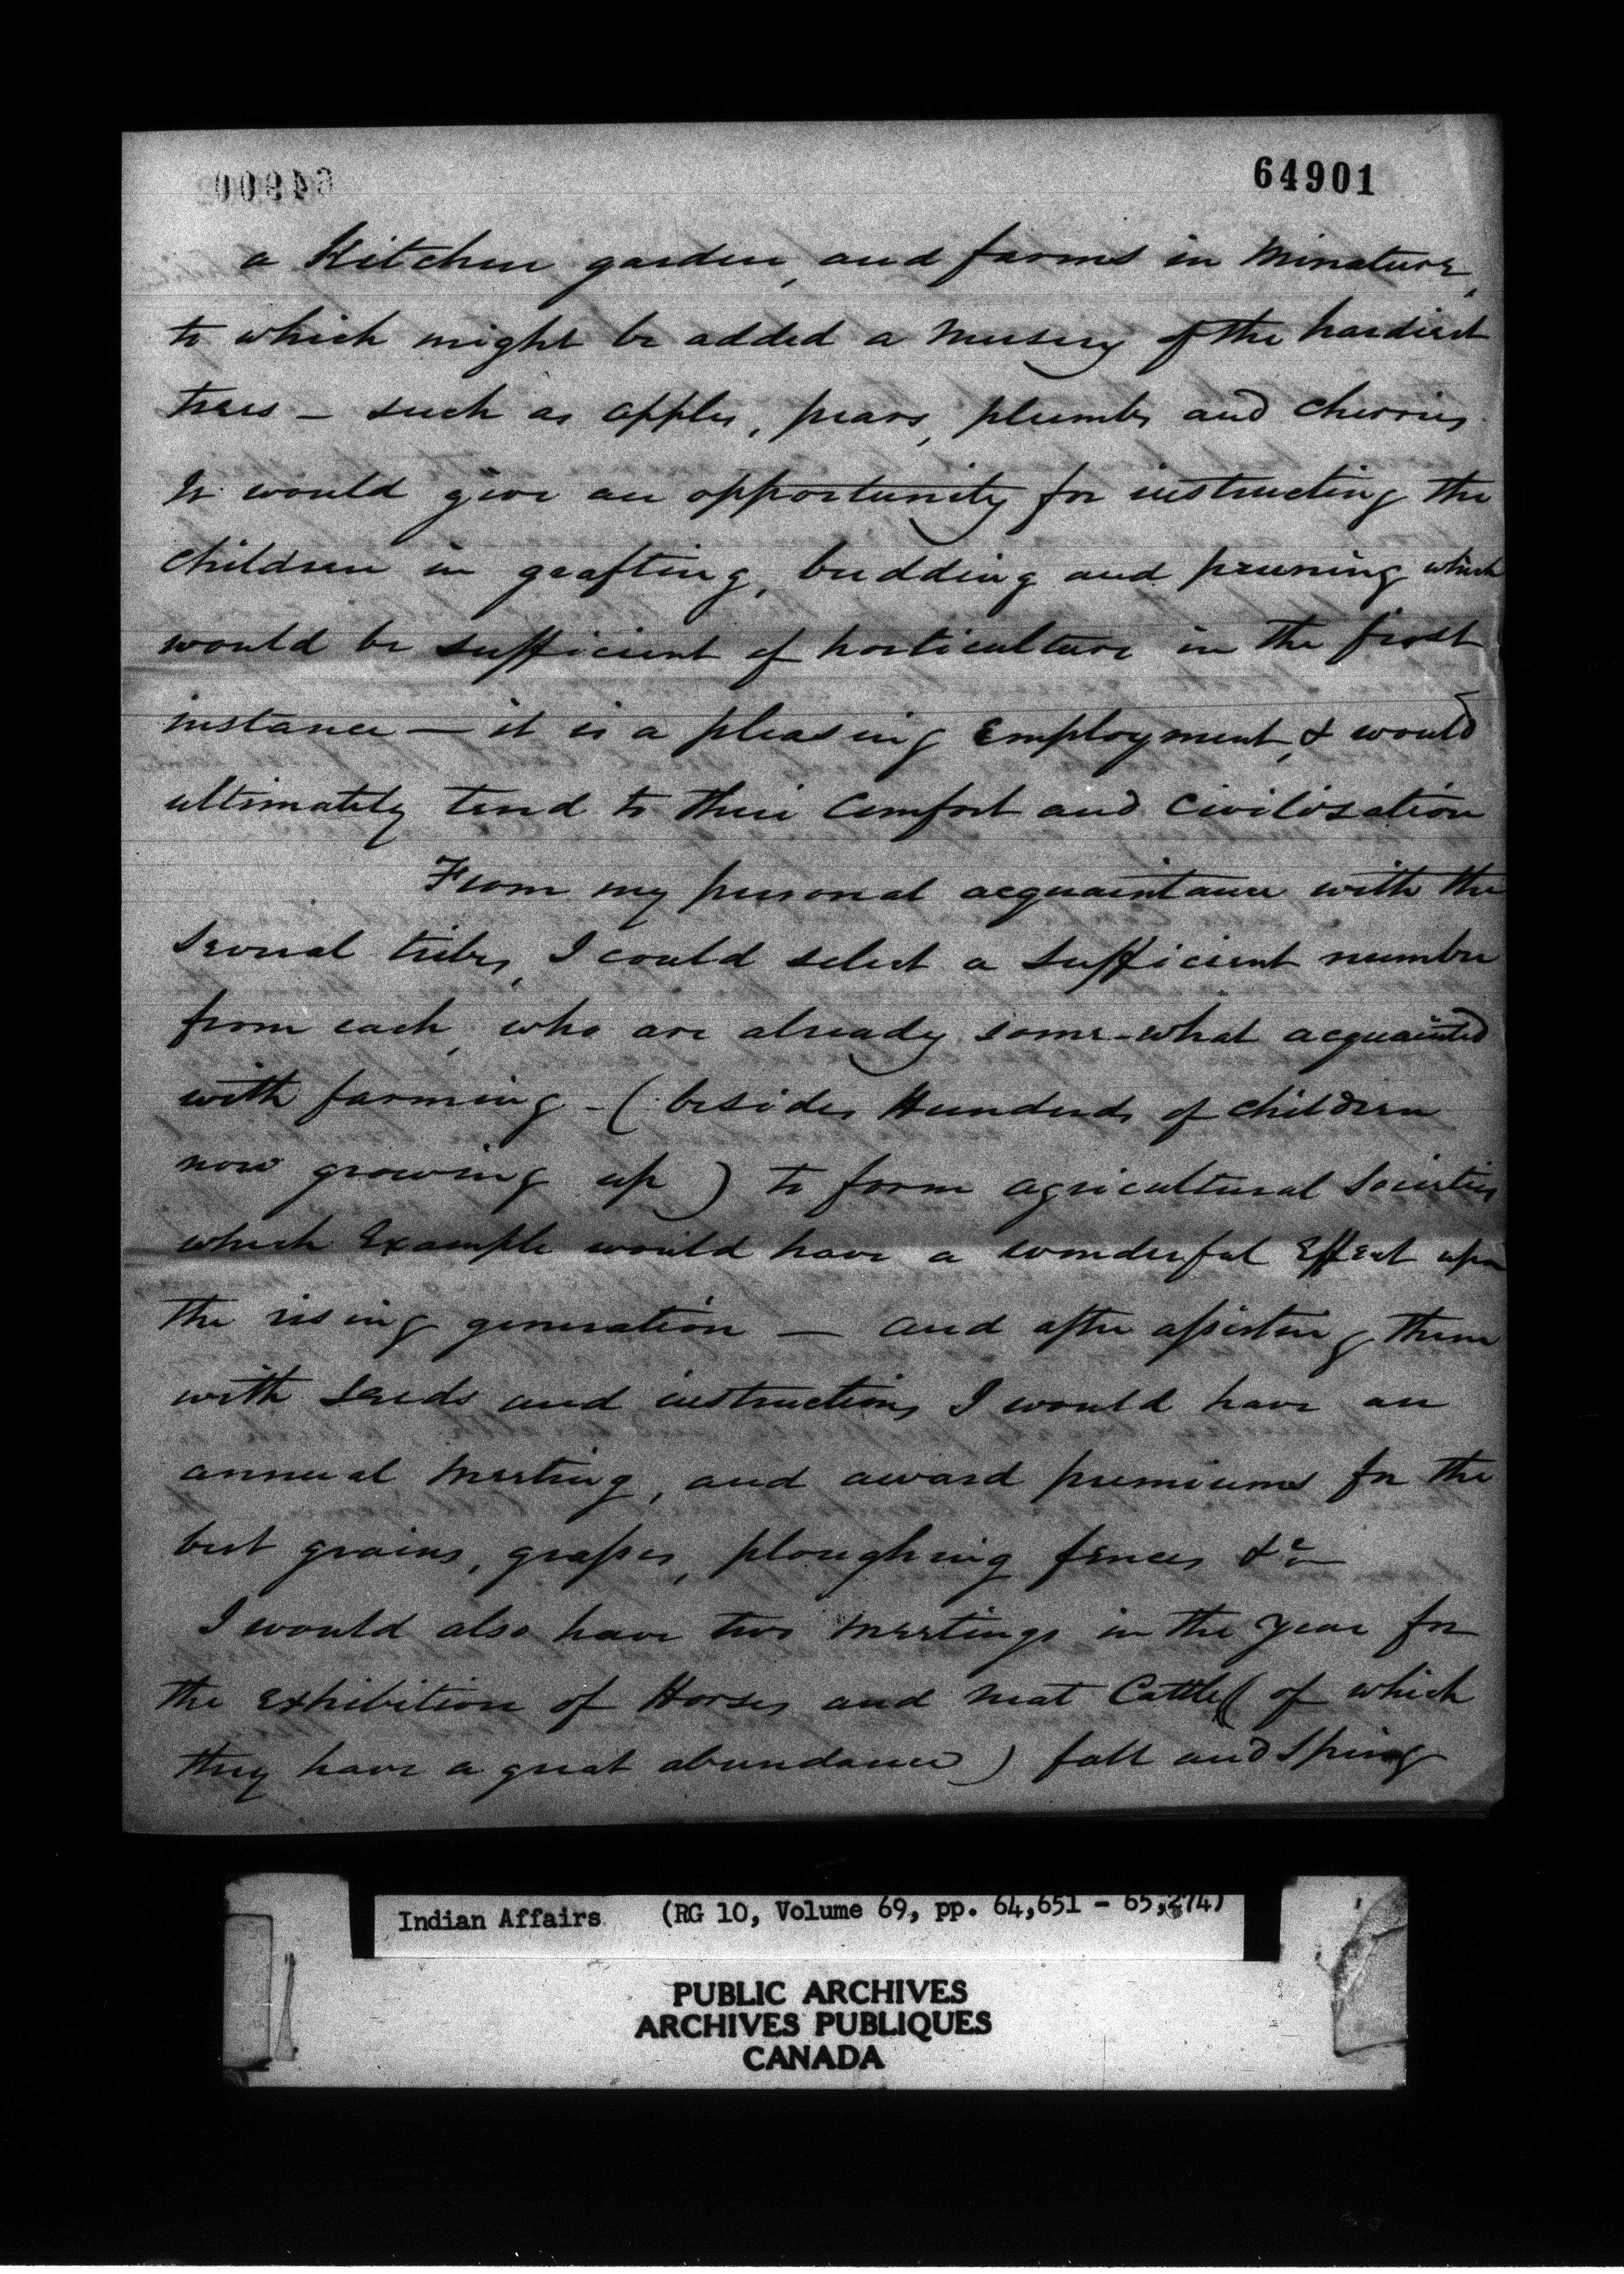 64901
a Kitchen garden, and farms in Minature,
to which might be added a nursery of the hardiest
trees – such as apples, pears, plumbs and cherries
It would give an opportunity for instructing the
children in grafting, budding and pruning which
would be sufficient of horticulture in the first
instance – it is a pleasing Employment, & would
ultimately tend to their Comfort and Civilisation
From my personal acquaintance with the
several tribes, I could select a sufficient number
from each, who are already some-what acquainted
with farming – (besides Hundreds of children
now growing up) to form agricultural Societies
which Example would have a wonderful Effect upon
the rising generation – and after assisting them
with seeds and instructions I would have an
annual Meeting, and award premiums for the
best grains, grasses, ploughing fences &c
I would also have two Meetings in the year for
the Exhibition of Horses and neat Cattle (of which
they have a great abundance) fall and Spring
Indian Affairs (RG 10, Volume 69, pp. 64,651 - 65,274)
PUBLIC ARCHIVES
ARCHIVES PUBLIQUES
CANADA